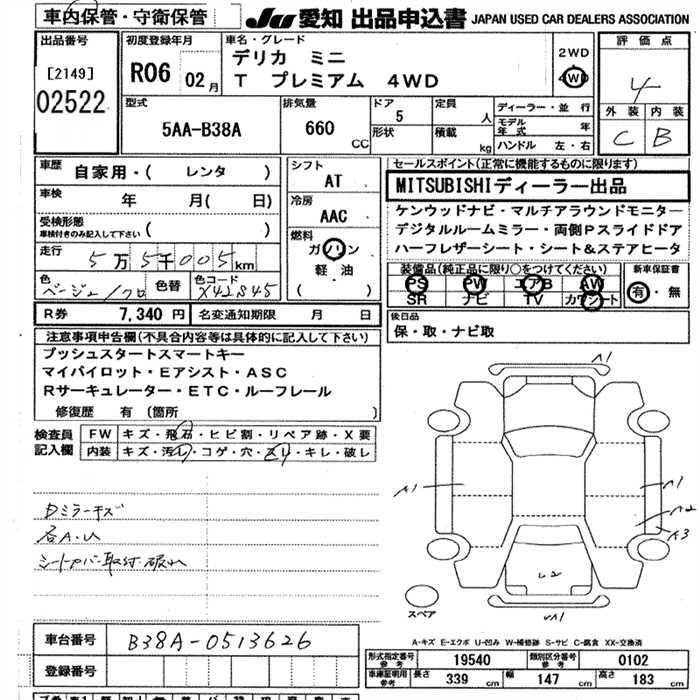 車内保管・守衛保管
JU 愛知 出品申込書 JAPAN USED CAR DEALERS ASSOCIATION
出品番号
[2149]
02522
初度登録年月
R06 02月
車名・グレード
デリカ ミニ
T プレミアム 4WD
2WD
4WD
評価点
4
外装 内装
C B
型式
5AA-B38A
排気量
660
CC
ドア
5
形状
定員
人
積載
kg
ディーラー・並行
モデル年式
年
ハンドル 左・右
車歴
自家用・( レンタ )
車検
年 月( 日)
受検形態
車検付きのみ記入して下さい ( )
走行
5万5千005km
色
ベージュ/クロ
色替
色コード
X42845
シフト
AT
冷房
AAC
燃料
ガソリン
軽・油
( )
セールスポイント(正常に機能するものに限ります)
MITSUBISHIディーラー出品
ケンウッドナビ・マルチアラウンドモニター
デジタルルームミラー・両側Pスライドドア
ハーフレザーシート・シート&ステアヒータ
装備品(純正品に限り○をつけてください)
PS PW エアB AW
SR ナビ TV カワシート
新車保証書
有・無
R券 7,340 円 名変通知期限 月 日
後日品
保・取・ナビ取
注意事項申告欄(不具合内容等は具体的に記入して下さい)
プッシュスタートスマートキー
マイパイロット・Eアシスト・ASC
Rサーキュレーター・ETC・ルーフレール
修復歴 有 (箇所 )
検査員記入欄
FW キズ・飛石・ヒビ割・リペア跡・X要
内装 キズ・汚レ・コゲ・穴・スレ・キレ・破レ
Dミラーキズ
各A.U
シートカバー取付 破れ
A1
A1
A1
A2
A3
U2
UA1
スペア
A-キズ E-エクボ U-凹み W-補修跡 S-サビ C-腐食 XX-交換済
車台番号
B38A-0513626
登録番号
形式指定番号 参考 19540
類別区分番号 参考 0102
車庫証明用 参考 長さ 339 cm 幅 147 cm 高さ 183 cm